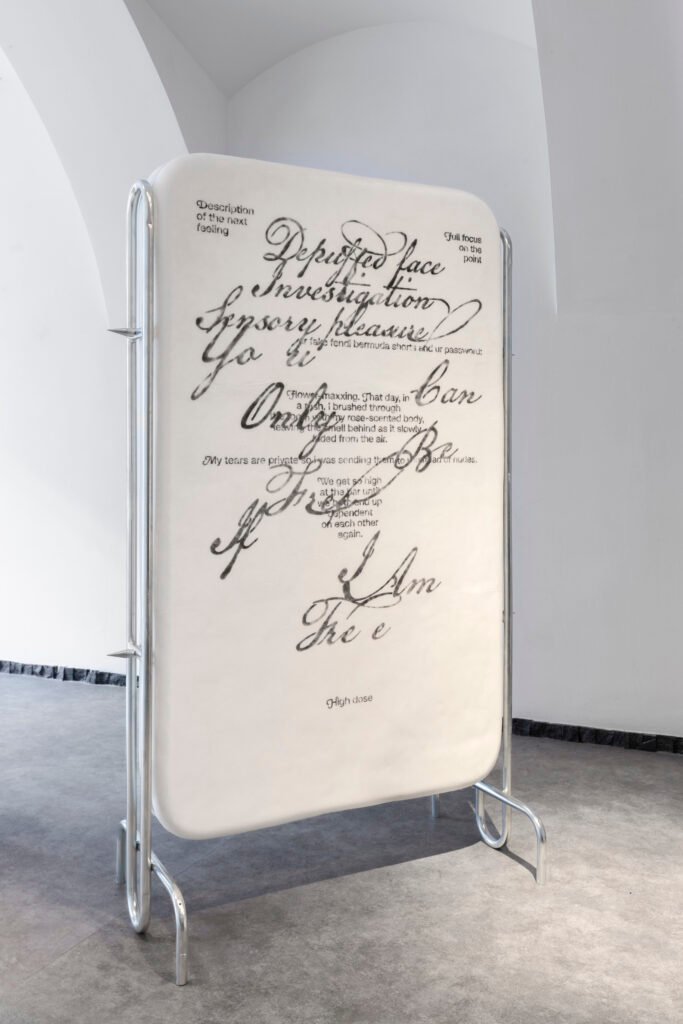 Description
of the next
feeling
Full focus
on the
point
Depuffed face
Investigation
Sensory pleasure
ur fake fendi bermuda shorts and ur password:
Yo u
Can
Flower-maxxing. That day, in
a rush, I brushed through
my rose-scented body,
leaving the smell behind as it slowly
faded from the air.
Only
Be
My tears are private so I was sending them to u instead of nudes.
Free
We get so high
at the bar until
we both end up
dependent
on each other
again.
If
I Am
Fre e
High dose